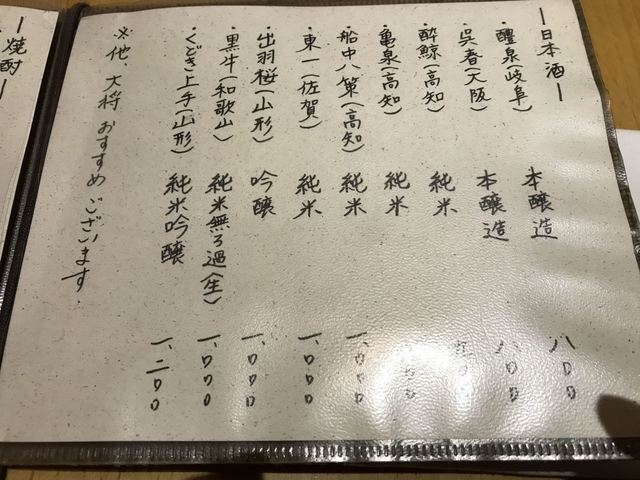 ―日本酒―
・醴泉(岐阜) 本醸造 八〇〇
・呉春(大阪) 本醸造 八〇〇
・酔鯨(高知) 純米
・亀泉(高知) 純米
・船中八策(高知) 純米 一、〇〇〇
・東一(佐賀) 純米 一、〇〇〇
・出羽桜(山形) 吟醸 一、〇〇〇
・黒牛(和歌山) 純米無ろ過(生) 一、〇〇〇
・くどき上手(山形) 純米吟醸 一、二〇〇
※他、大将おすすめございます.
―焼酎―